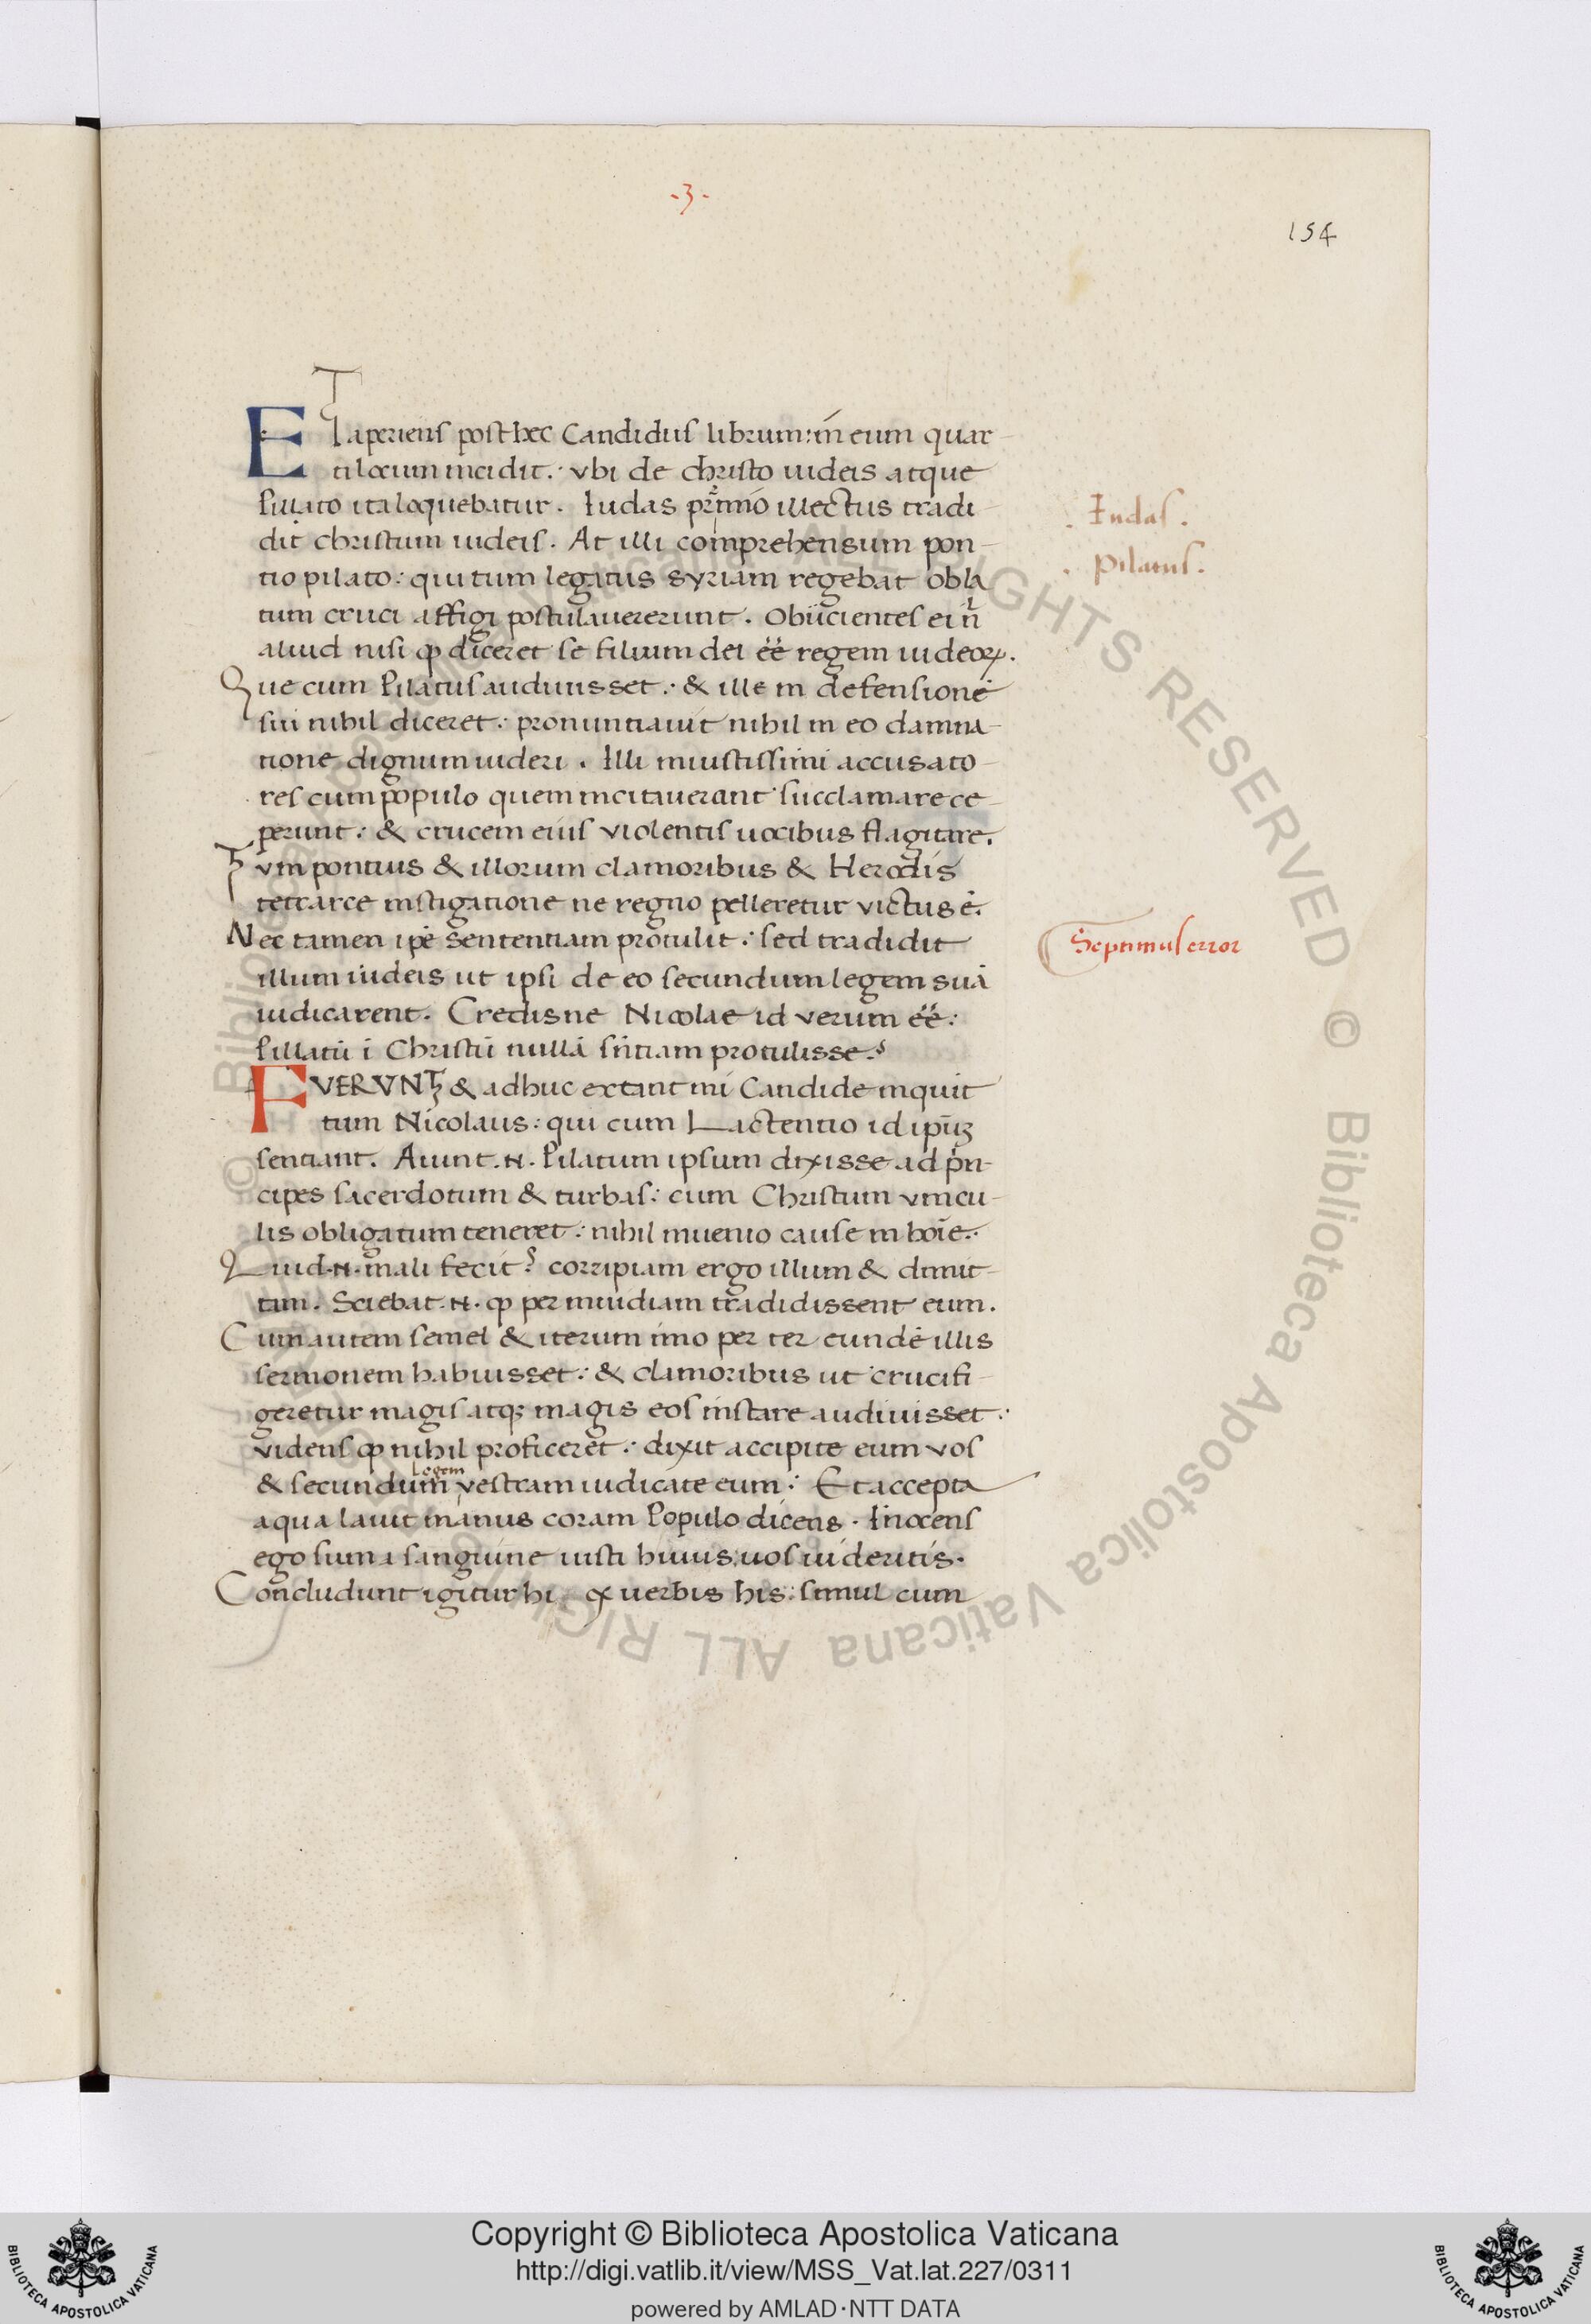 -3-
154
ET aperiens post hec Candidus librum: in eum quar-
ti locum incidit: vbi de christo iudeis atque
Pillato ita loquebatur. Iudas pr̃mio illectus tradi-
dit christum iudeis. At illi comprehensum pon-
tio pilato: qui tum legatus syriam regebat obla
tum cruci affigi postulauererunt. Obiicientes ei ñ
aliud nisi qꝫ diceret se filium dei e͞e regem iudeoꝝ.
Que cum Pilatus audiuisset: & ille in defensionē
sui nihil diceret: pronuntiauit nihil in eo damna-
tione dignum uideri. Illi iniustissimi accusato-
res cum populo quem incitauerant succlamare ce-
perunt: & crucem eius violentis uocibus flagitare.
Tvm pontius & illorum clamoribus & Herodis
tetrarce instigatione ne regno pelleretur victus ē.
Nec tamen ip̄e sententiam protulit: sed tradidit
illum iudeis ut ipsi de eo secundum legem suā
iudicarent. Credisne Nicolae id verum e͞e:
Pillatū ī Christū nullā sn̄tiam protulisse?
FVERVNTꝫ & adhuc extant mi Candide inquit
tum Nicolaus: qui cum Lactentio id ip̄uꝫ
sentiant. Aiunt .N. Pilatum ipsum dixisse ad prin-
cipes sacerdotum & turbas: cum Christum vincu-
lis obligatum teneret: nihil inuenio cause in hoīe.
Quid .N. mali fecit? corripiam ergo illum & dimit-
tam. Sciebat .N. qꝫ per inuidiam tradidissent eum.
Cum autem semel & iterum imo per ter eundē illis
sermonem habuisset: & clamoribus ut crucifi-
geretur magis atqꝫ magis eos instare audiuisset:
videns qꝫ nihil proficeret: dixit accipite eum vos
& secundum Legem vestram iudicate eum: Et accepta
aqua lauit manus coram Populo dicens. Inocens
ego sum a sanguine iusti huius: uos uideritis.
Concludunt igitur hi ex uerbis his: simul cum
Iudas.
Pilatus.
Septimus error
Copyright © Biblioteca Apostolica Vaticana
http://digi.vatlib.it/view/MSS_Vat.lat.227/0311
powered by AMLAD·NTT DATA
BIBLIOTECA APOSTOLICA VATICANA
BIBLIOTECA APOSTOLICA VATICANA